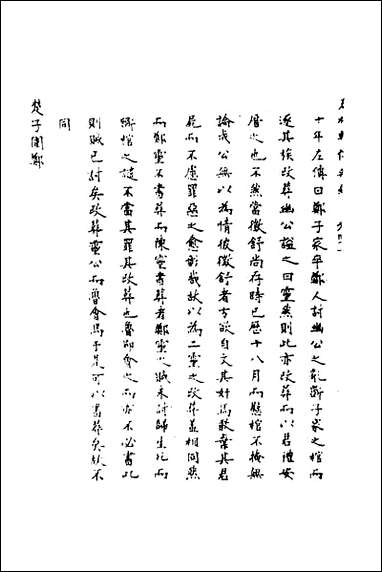 十年左傳曰鄭子家卒鄭人討幽公之亂斲子家之棺而
逐其族改葬幽公諡之曰靈然則此亦改葬而以君禮安
厝之也不然當徵舒尚存時已歷十八月而慭棺不掩無
論成公無以為情彼徵舒者方欲自文其奸焉敢棄其君
屍而不慮罪惡之愈彰哉故以為二靈之改葬並相同然
而鄭靈不書葬而陳靈書葬者鄭靈之賊未討歸生死而
斲棺之討不當其罪其改葬也魯卽會之而亦不必書此
則賊已討矣改葬靈公而魯會焉于是可以書葬矣故不
同
楚子圍鄭